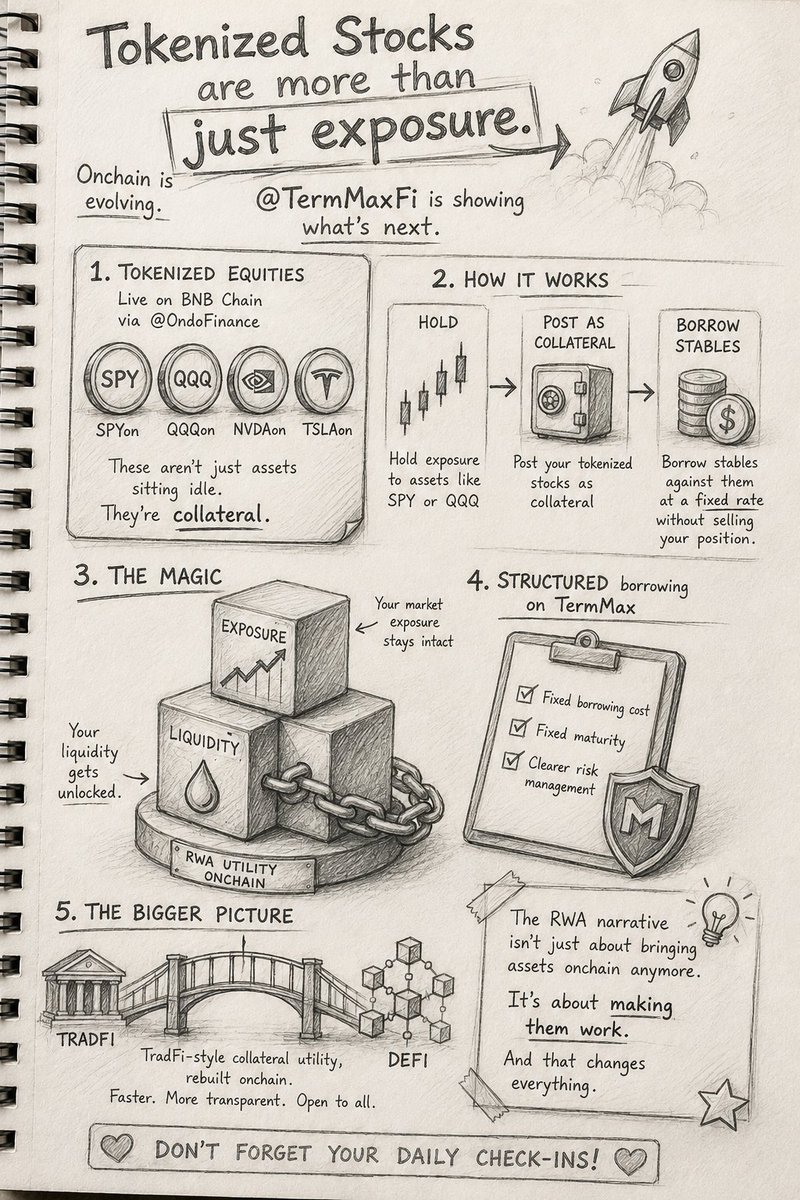 Tokenized Stocks
are more than
just exposure.
Onchain is
evolving.
@TermMaxFi is showing
what's next.
1. TOKENIZED EQUITIES
Live on BNB Chain
via @OndoFinance
SPY
QQQ
SPYon
QQQon
NVDAon
TSLAon
These aren't just assets
sitting idle.
They're collateral.
2. HOW IT WORKS
HOLD
Hold exposure
to assets like
SPY or QQQ
POST AS
COLLATERAL
Post your tokenized
stocks as
collateral
BORROW
STABLES
$
Borrow stables
against them
at a fixed rate
without selling
your position.
3. THE MAGIC
EXPOSURE
Your market
exposure
stays intact
LIQUIDITY
Your
liquidity
gets
unlocked.
RWA UTILITY
ONCHAIN
4. STRUCTURED borrowing
on TermMax
Fixed borrowing cost
Fixed maturity
Clearer risk
management
M
5. THE BIGGER PICTURE
TRADFI
DEFI
TradFi-style collateral utility,
rebuilt onchain.
Faster. More transparent. Open to all.
The RWA narrative
isn't just about bringing
assets onchain anymore.
It's about making
them work.
And that changes
everything.
DON'T FORGET YOUR DAILY CHECK-INS!